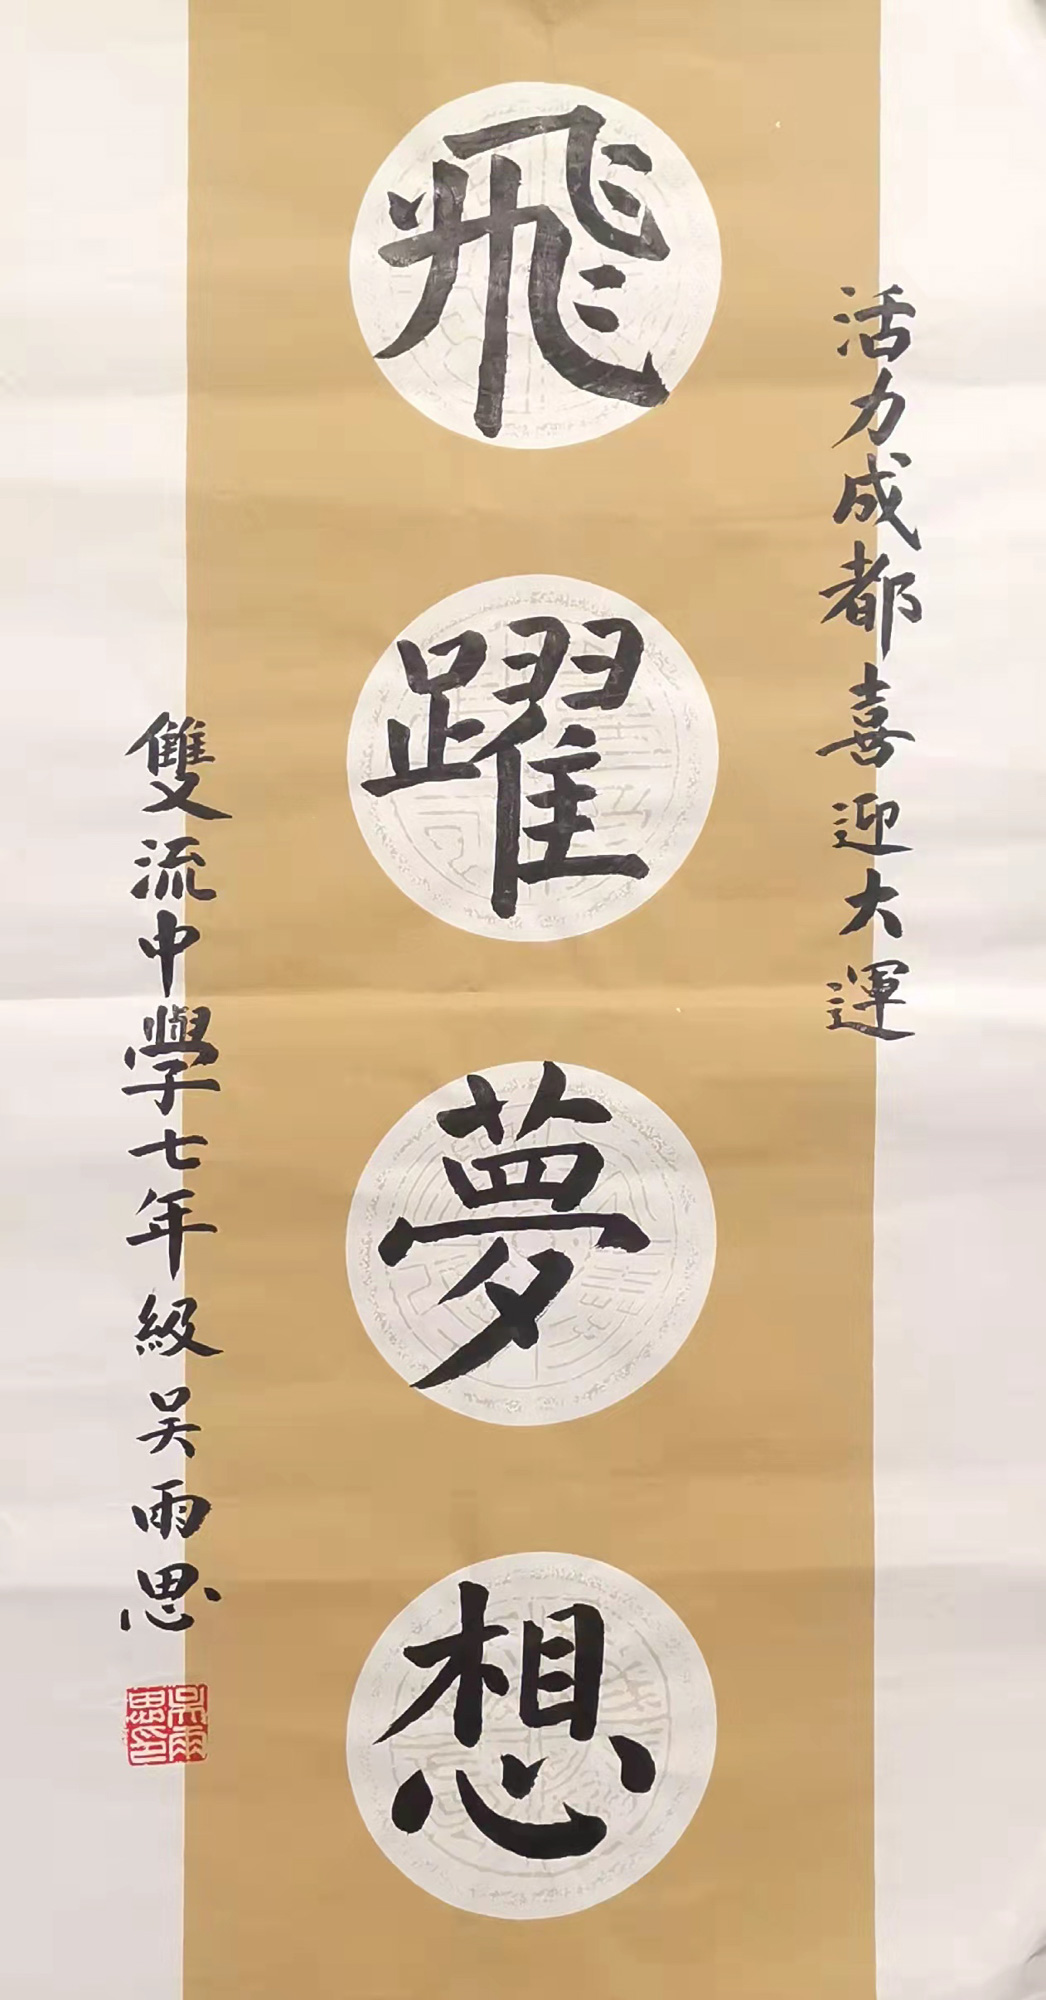 活力成都喜迎大運
飛躍夢想
雙流中學七年級吴雨思
吴雨思印